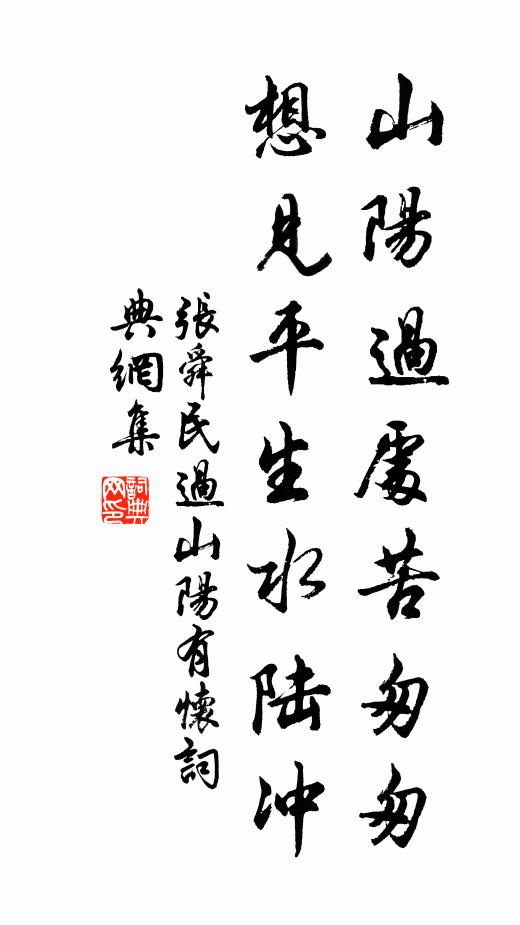 山陽過處苦匆匆
想見平生水陆冲
張舜民過山陽有懷詞
典網集
詞典
网印